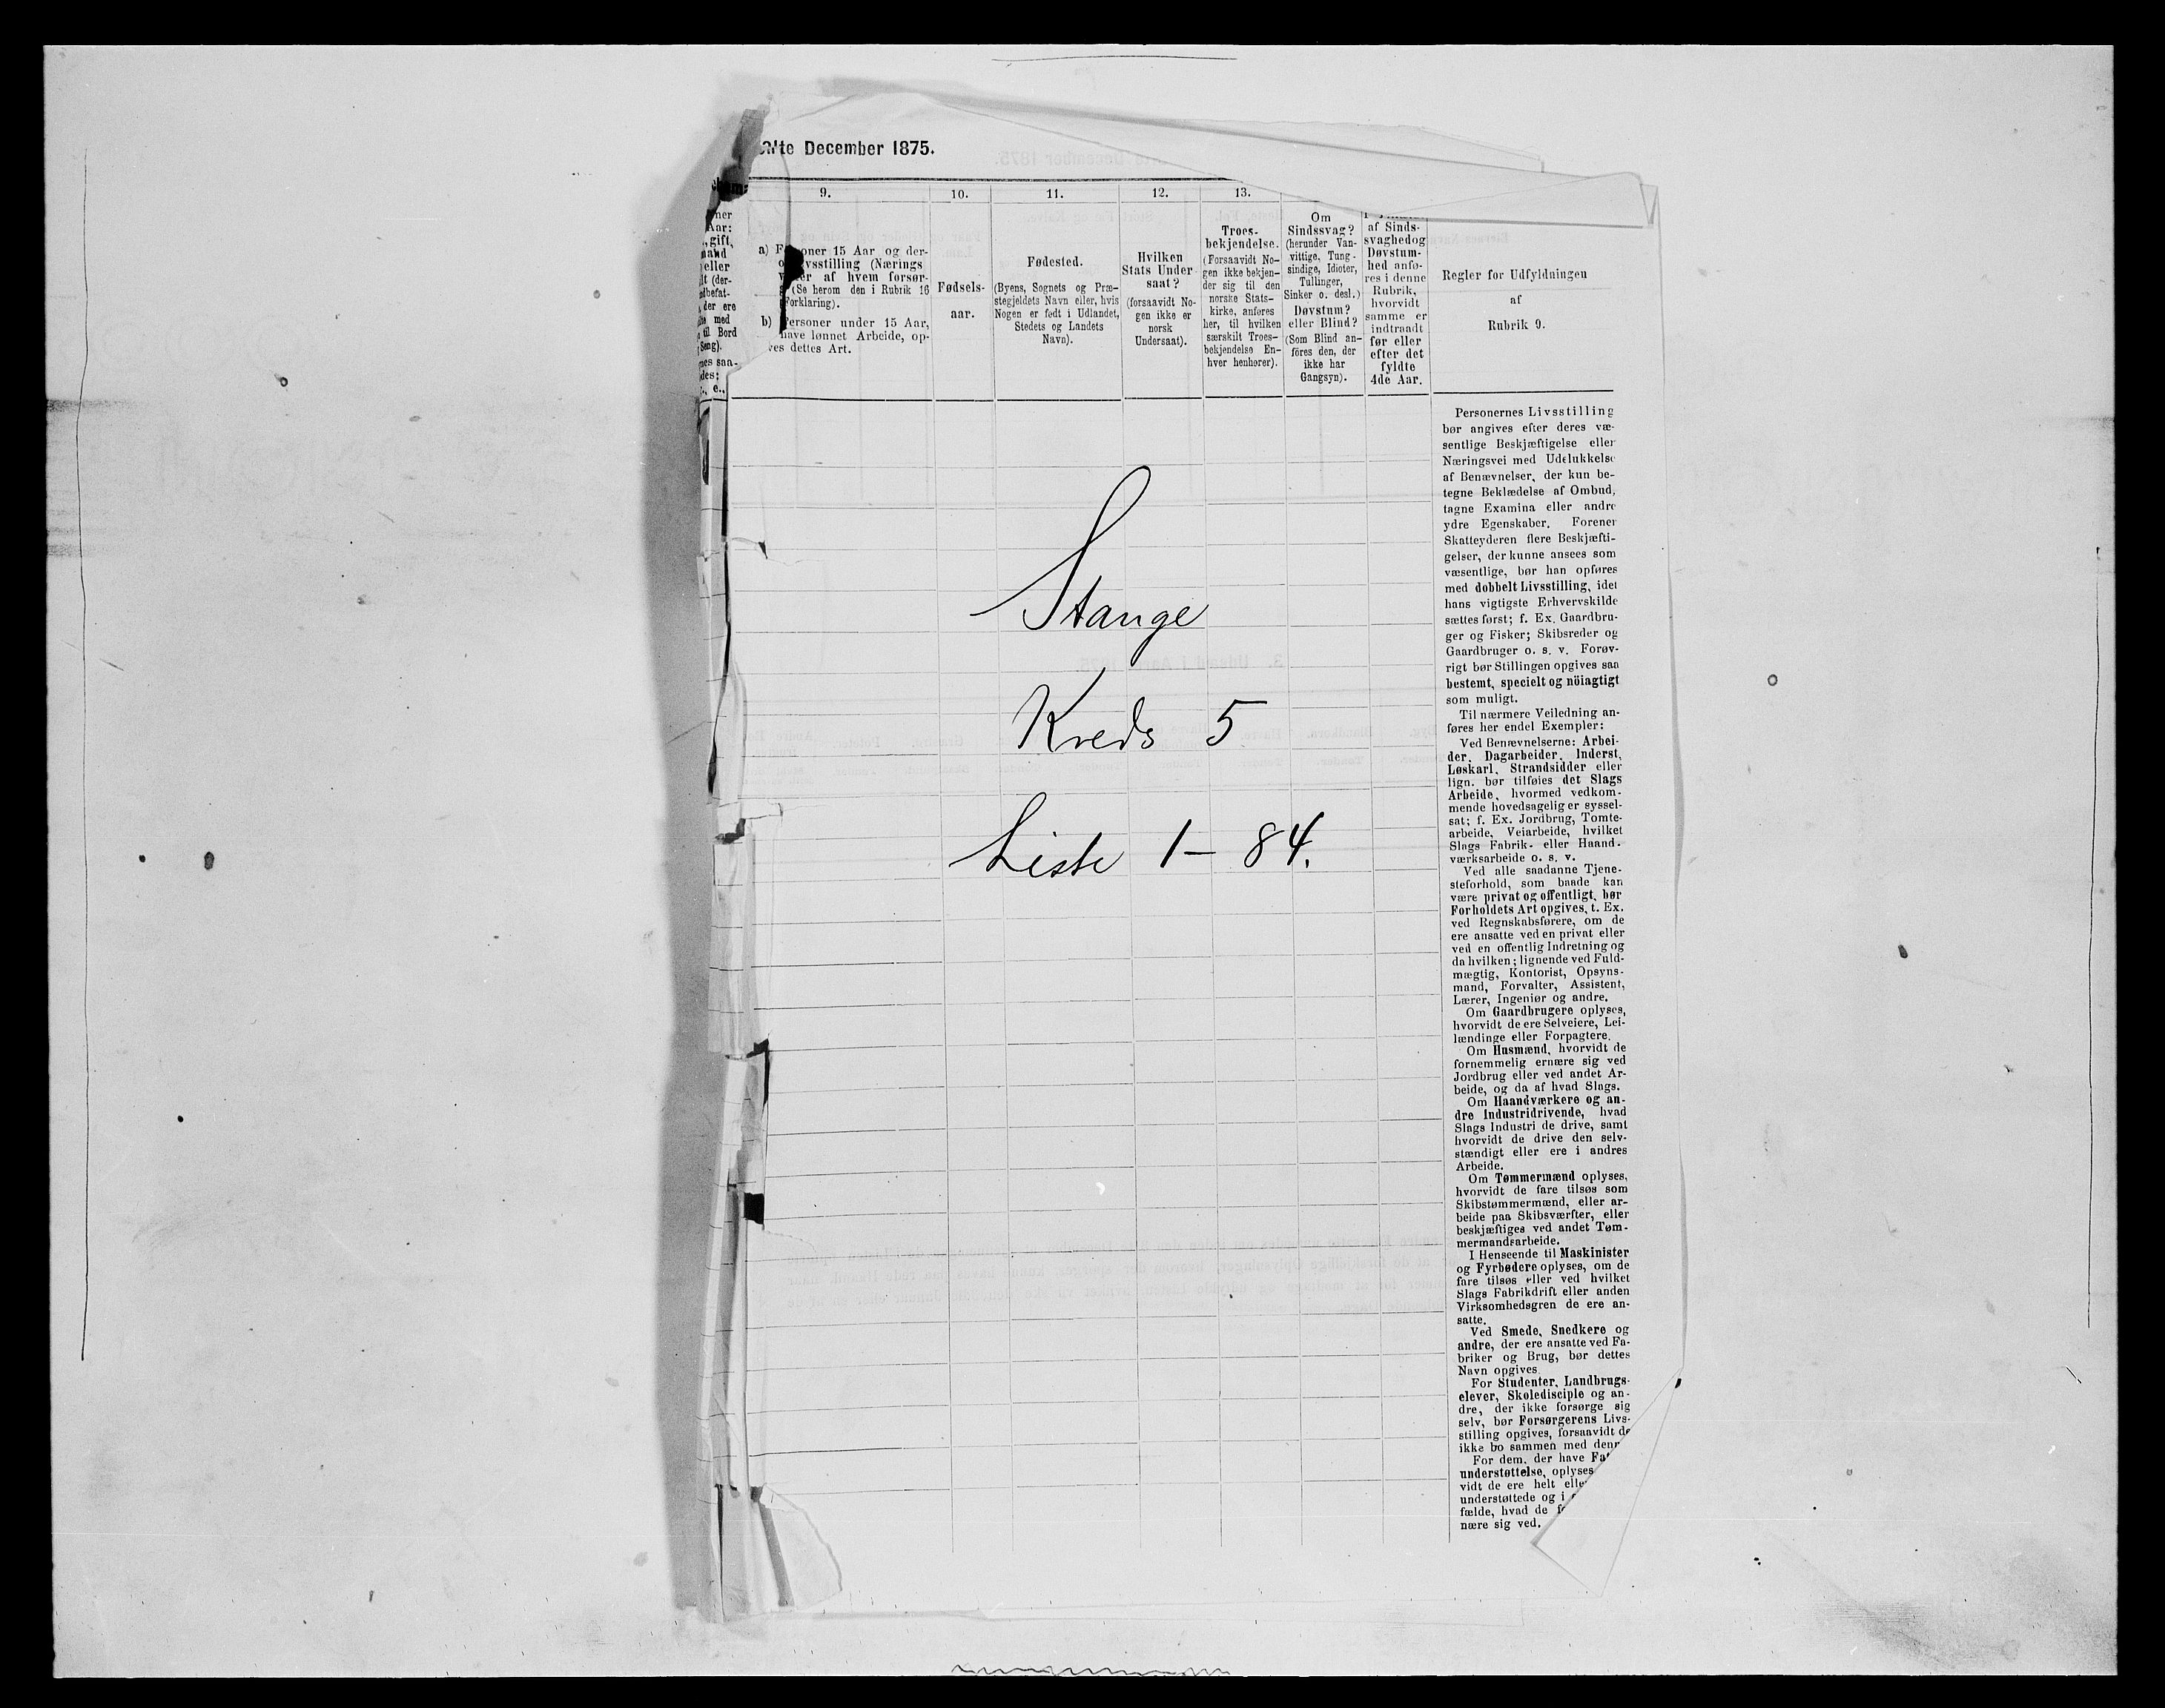 December 1875.
9.
10.
11.
12.
13.
ner
Aar:
gift,
mand
eller
(der-
der ere
med
til Bord
Seng).
e.,
a) 15 Aar og der-
(Nærings
af hvem forsør-
(Se herom den i Rubrik 16
Forklaring).
b) Personer under 15 Aar,
have lønnet Arbeide, op-
dettes Art.
Fødsels-
aar.
Fødested.
(Byens, Sognets og Præ-
stegjeldets Navn eller, hvis
Nogen er født i Udlandet,
Stedets og Landets
Navn).
Hvilken
Stats Under-
saat?
(forsaavidt No-
gen ikke er
norsk
Undersaat).
Troes-
bekjendelse.
(Forsaavidt No-
gen ikke bekjen-
der sig til den
norske Stats-
kirke, anføres
her, til hvilken
særskilt Troes-
bekjendelse En-
hver henhører).
Om
Sindssvag?
(herunder Van-
vittige, Tung-
sindige, Idioter,
Tullinger,
Sinker o. desl.)
Døvstum?
eller Blind?
(Som Blind an-
føres den, der
ikke har
Gangsyn).
af Sinds-
svaghed og
Døvstum-
hed anfø-
res i denne
Rubrik,
hvorvidt
samme er
indtraadt
før eller
efter det
fyldte
4de Aar.
Regler for Udfyldningen
af
Rubrik 9.
Stange
Kreds 5
Liste 1 - 84.
Personernes Livsstilling
bør angives efter deres væ-
sentlige Beskjæftigelse eller
Næringsvei med Udelukkelse
af Benævnelser, der kun be-
tegne Beklædelse af Ombud,
tagne Examina eller andre
ydre Egenskaber. Forener
Skatteyderen flere Beskjæfti-
gelser, der kunne ansees som
væsentlige, bør han opføres
med dobbelt Livsstilling, idet
hans vigtigste Erhvervskilde
sættes først; f. Ex. Gaardbru-
ger og Fisker; Skibsreder og
Gaardbruger o. s. v. Forøv-
rigt bør Stillingen opgives saa
bestemt, specielt og nöiagtigt
som muligt.
Til nærmere Veiledning an-
føres her endel Exempler:
Ved Benævnelserne: Arbei-
der, Dagarbeider, Inderst,
Løskarl, Strandsidder eller
lign. bør tilføies det Slags
Arbeide, hvormed vedkom-
mende hovedsagelig er syssel-
sat; f. Ex. Jordbrug, Tomte-
arbeide, Veiarbeide, hvilket
Slags Fabrik- eller Haand-
værksarbeide o. s. v.
Ved alle saadanne Tjene-
steforhold, som baade kan
være privat og offentligt, bør
Forholdets Art opgives, t. Ex.
ved Regnskabsførere, om de
ere ansatte ved en privat eller
ved en offentlig Indretning og
da hvilken; lignende ved Fuld-
mægtig, Kontorist, Opsyns-
mand, Forvalter, Assistent,
Lærer, Ingeniør og andre.
Om Gaardbrugere oplyses,
hvorvidt de ere Selveiere, Lei-
lændinge eller Forpagtere.
Om Husmænd, hvorvidt de
fornemmelig ernære sig ved
Jordbrug eller ved andet Ar-
beide, og da af hvad Slags.
Om Haandværkere og an-
dre Industridrivende, hvad
Slags Industri de drive, samt
hvorvidt de drive den selv-
stændigt eller ere i andres
Arbeide.
Om Tømmermænd oplyses,
hvorvidt de fare tilsøs som
Skibstømmermænd, eller ar-
beide paa Skibsværfter, eller
beskjæftiges ved andet Tøm-
mermandsarbeide.
I Henseende til Maskinister
og Fyrbødere oplyses, om de
fare tilsøs eller ved hvilket
Slags Fabrikdrift eller anden
Virksomhedsgren de ere an-
satte.
Ved Smede, Snedkere og
andre, der ere ansatte ved Fa-
briker og Brug, bør dettes
Navn opgives.
For Studenter, Landbrugs-
elever, Skoledisciple og an-
dre, der ikke forsørge sig
selv, bør Forsørgerens Livs-
stilling opgives, forsaavidt de
ikke bo sammen med
For dem, der have
understøttelse, oplyses
vidt de ere helt
understøttede og i
fælde, hvad de
nære sig ved.